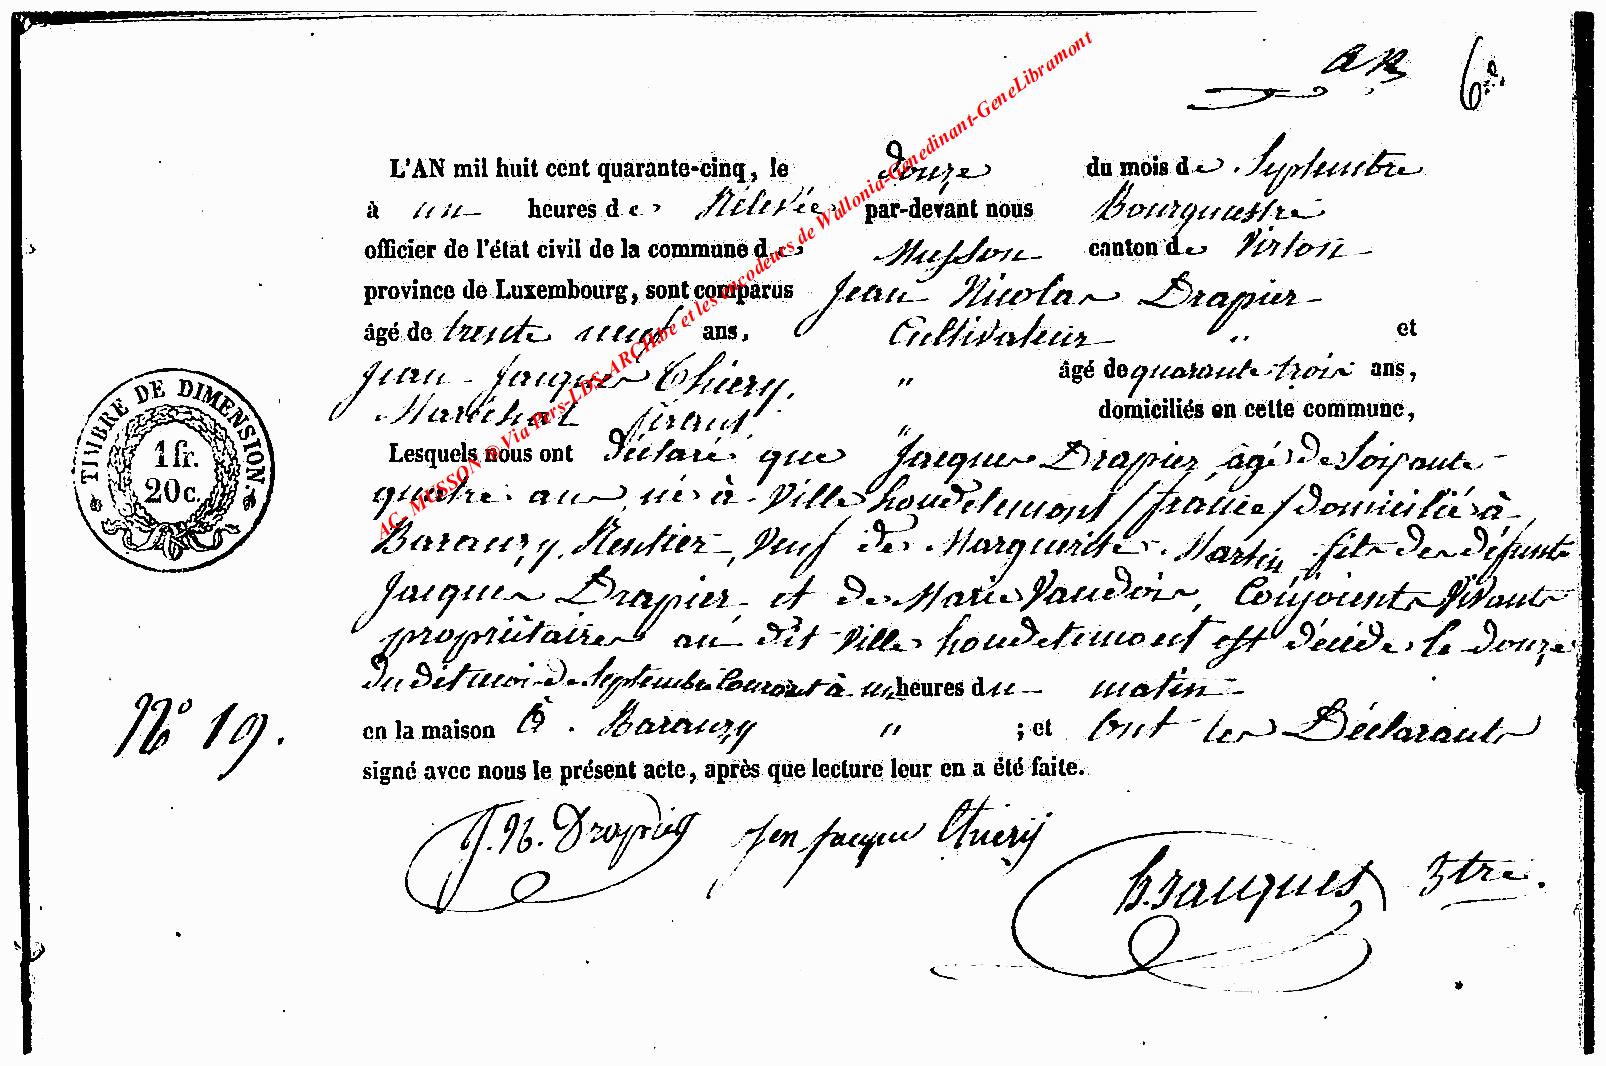 6
L'AN mil huit cent quarante-cinq, le douze du mois de Septembre
à un heures de Rélevée par-devant nous Bourguestre
officier de l'état civil de la commune de Musson canton de Virton
province de Luxembourg, sont comparus Jean Nicolas Drapier
âgé de trente neuf ans, Cultivateur " et
Jean Jacques Thiery, " âgé de quarante trois ans,
Maréchal férant " domiciliés en cette commune,
Lesquels nous ont déclaré que Jacques Drapier âgé de Soixante
quatre ans né à Ville houdelemont /france/ domicilié à
Baranzy, Rentier, Veuf de Marguerite Martin fils de défunts
Jacques Drapier et de Marie Vaudois, Conjoints Vivants
propriétaires au dit Ville houdelemont est décédé le douze
du dit mois de Septembre Courant à un heures du matin
en la maison à Baranzy " ; et Ont les Déclarants
signé avec nous le présent acte, après que lecture leur en a été faite.
N° 19.
J. N. Drapier Jen Jacque Thiery
h. Jauques Btre.
TIMBRE DE DIMENSION.
1 fr.
20 c.
AC_MUSSON @ Via Pers-LDS-ARCH.be et les encodeurs de Wallonia-Genedinant-GeneLibramont